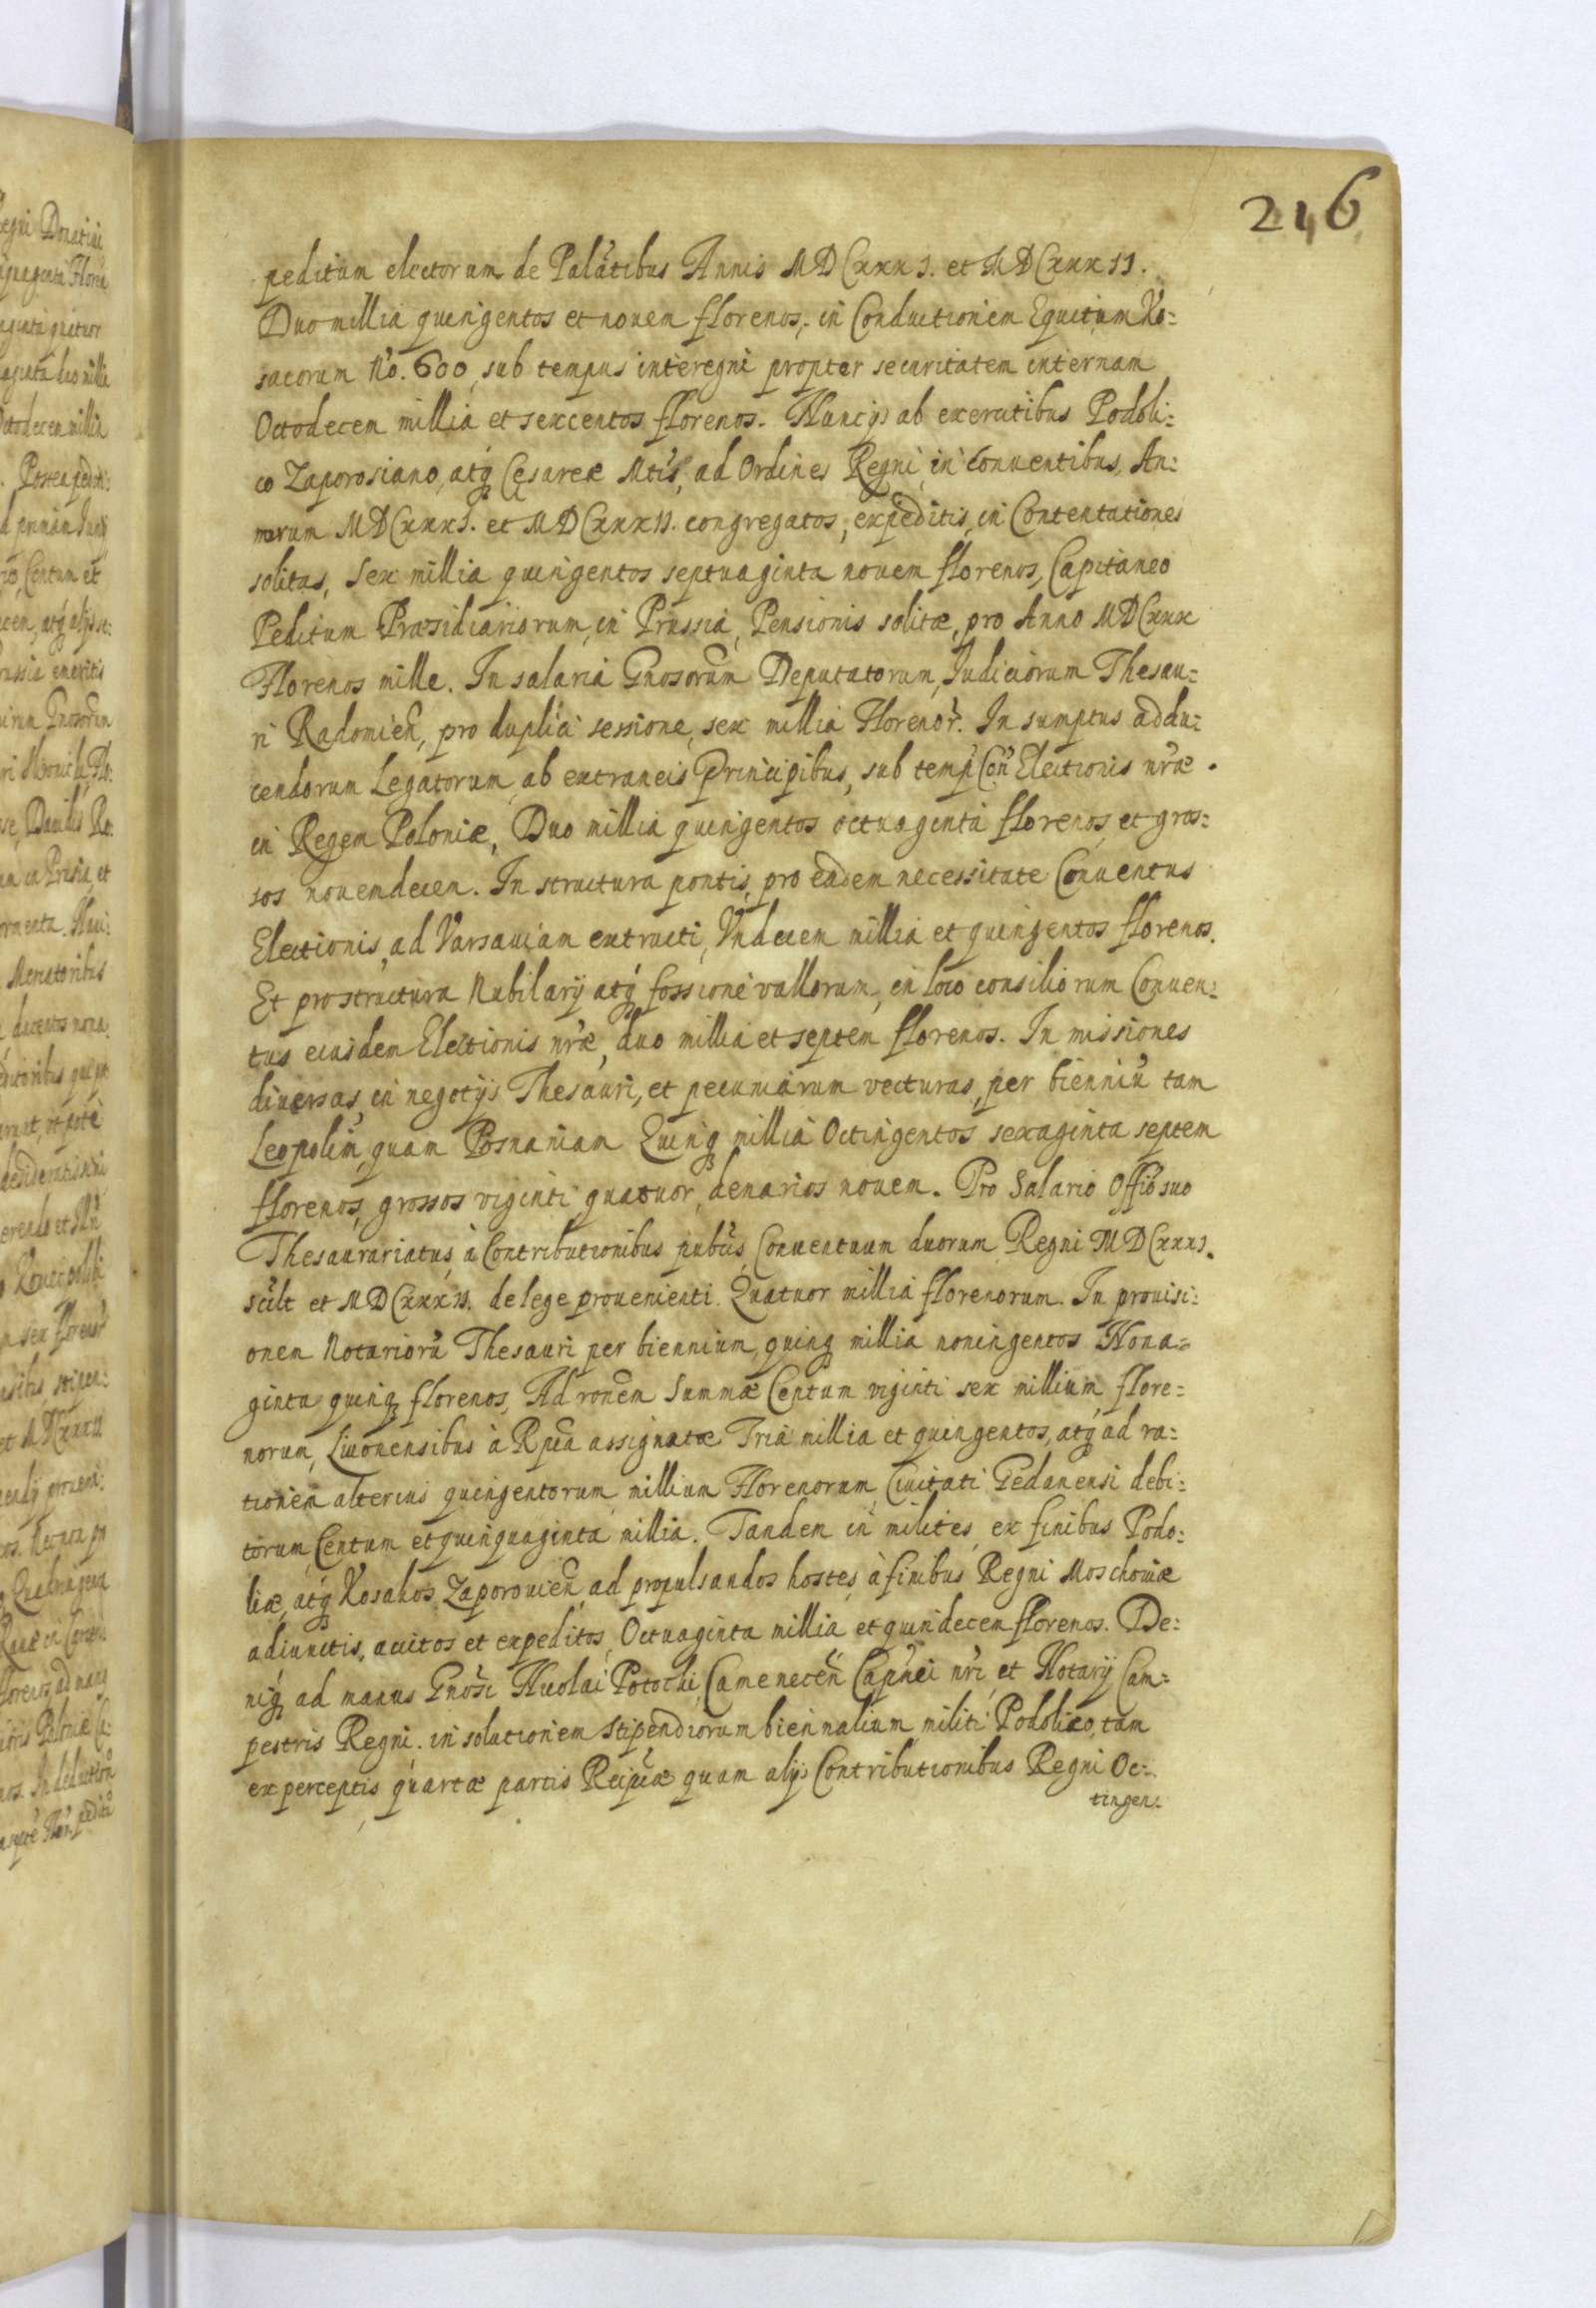 216
peditum electorum de Palatibus Annis MDCxxxJ. et MDCxxxJJ.
Duo millia quingentos et novem florenos, in Conductionem Equitum Ko=
sacorum No. 600, sub tempus interegni propter securitatem internam
Octodecem millia et sexcentos florenos. Nuncijs ab exercitibus Podoli=
co Zaporosiano, atq Cęsareæ Mtis, ad Ordines Regni, in conventibus, An=
norum MDCxxxJ. et MDCxxxJJ. congregatos, expeditis, in Contentationes
solitas, Sex millia quingentos septuaginta novem florenos, Capitaneo
Peditum Præsidiariorum, in Prussia, Pensionis solitæ, pro Anno MDCxxx
Florenos mille. In salaria Gnosorum Deputatorum, Iudiciorum Thesau=
ri Radomień, pro duplici sessione, sex millia Florenor. In sumptus addu=
cendorum Legatorum, ab extraneis Principibus, sub temp Con Electionis nræ
in Regem Poloniæ, Duo millia quingentos octuaginta florenos, et gros=
sos novemdecem. In structura pontis, pro eadem necessitate Conventus
Electionis, ad Varsaviam extructi, Vndecem millia et quingentos florenos.
Et pro structura Nubilarij atq fossione vallorum, in loco consiliorum Conven=
tus eiusdem Electionis nræ, duo millia et septem florenos. In missiones
diversas, in negotijs Thesauri, et pecuniarum vecturas, per bienniu tam
Leopolim, quam Posnaniam Quinq millia Octingentos sexaginta septem
florenos, grossos viginti quatuor, denarios novem. Pro Salario Offio suo
Thesaurariatus, à Contributionibus pubcis Conventuum duorum Regni MDCxxxJ.
scilt et MDCxxxJJ. de lege provenienti. Quatuor millia florenorum. In provisi=
onem Notarioru Thesauri per biennium, quinq millia noningentos Nona=
ginta quinq florenos, Ad ronem Summæ Centum viginti sex millium flore=
norum, Livonensibus à Rpca assignatæ Tria millia et quingentos, atq ad ra=
tionem alterius quingentorum millium Florenorum Civitati Gedanensi debi=
torum Centum et quinquaginta millia. Tandem in milites, ex finibus Podo=
liæ, atq Kosakos Zaporovień, ad propulsandos hostes, à finibus Regni Moschoviæ
adiunctis, accitos et expeditos, Octuaginta millia et quindecem florenos. De=
niq ad manus Gnosi Nicolai Potocki, Camenecen Capnei nri, et Notarij Cam=
pestris Regni. in solutionem stipendiorum biennalium, militi Podolico, tam
ex perceptis quartæ partis Reipcæ quam alijs Contributionibus Regni Oc=
tingen=